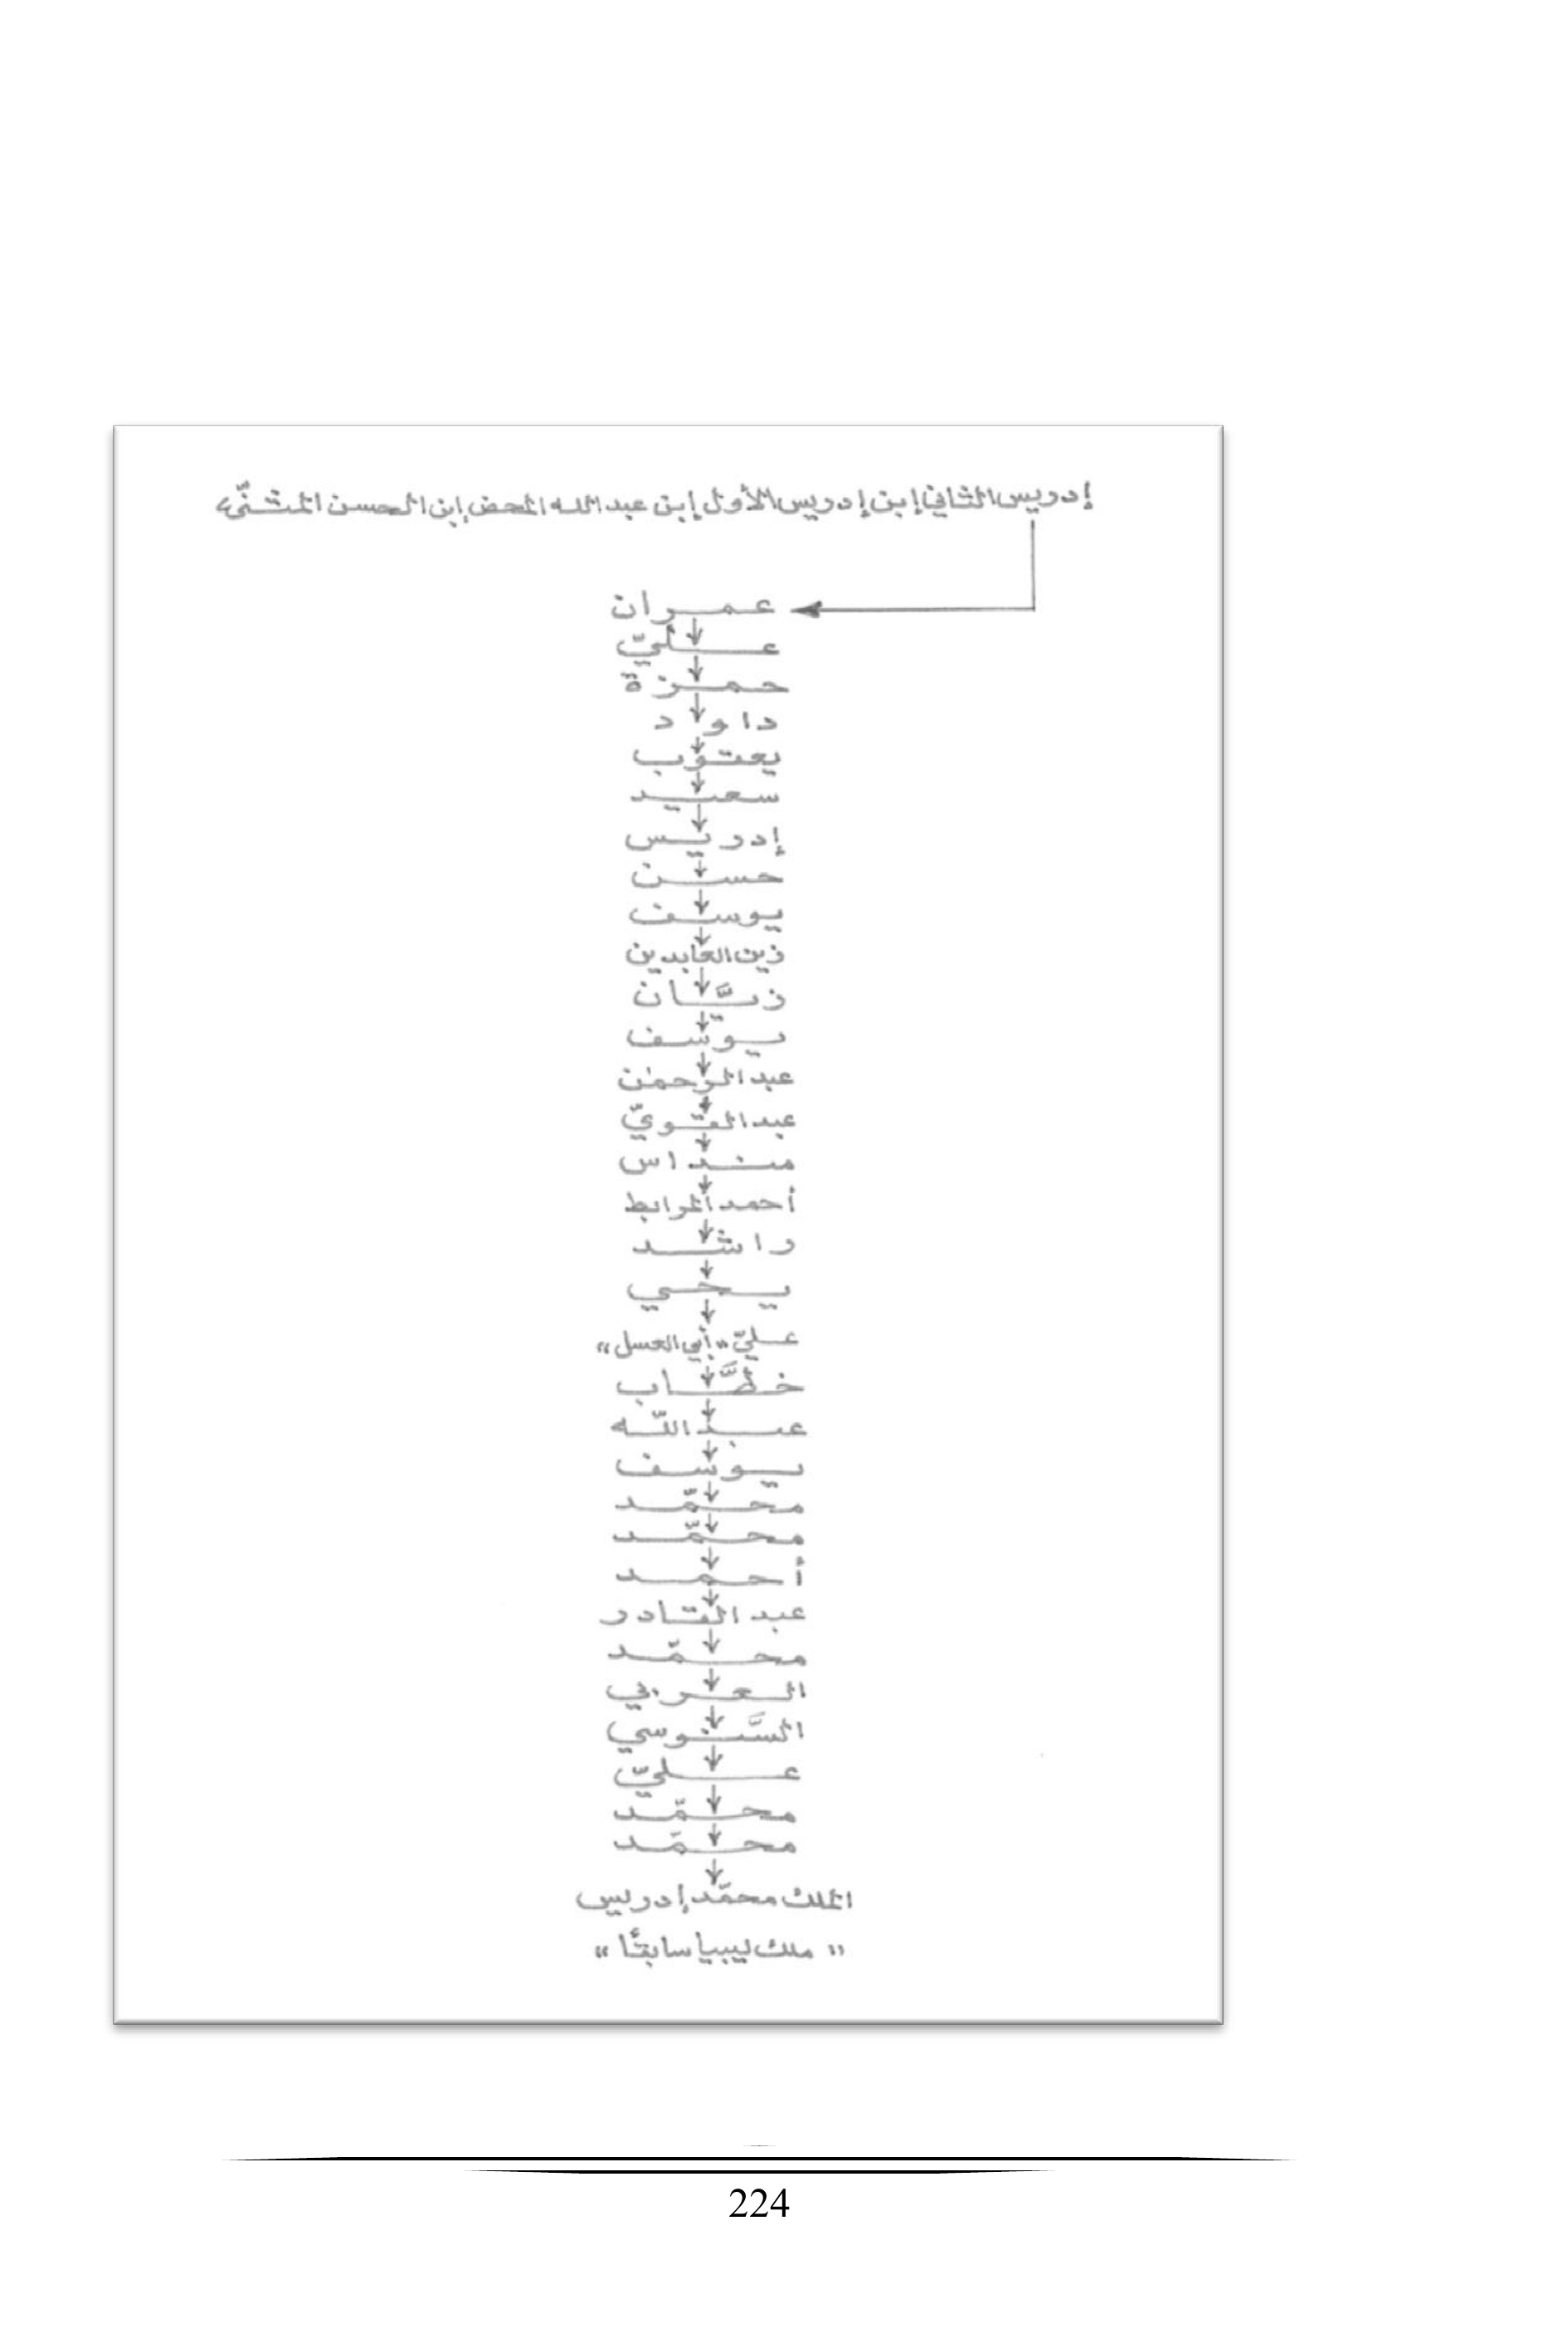 إدريس الثاني إبن إدريس الأول إبن عبد الله المحض إبن الحسن المثنّى
عمران
عليّ
حمزة
داود
يعقوب
سعيد
إدريس
حسن
يوسف
زين العابدين
زيَّان
يوسف
عبد الرحمٰن
عبد القويّ
منداس
أحمد المرابط
راشد
يحي
عليّ «أبي العسل»
خطَّاب
عبد اللّه
يوسف
محمّد
محمّد
أحمد
عبد القادر
محمّد
العربي
السَّنوسي
عليّ
محمّد
محمّد
الملك محمّد إدريس
« ملك ليبيا سابقًا »
224